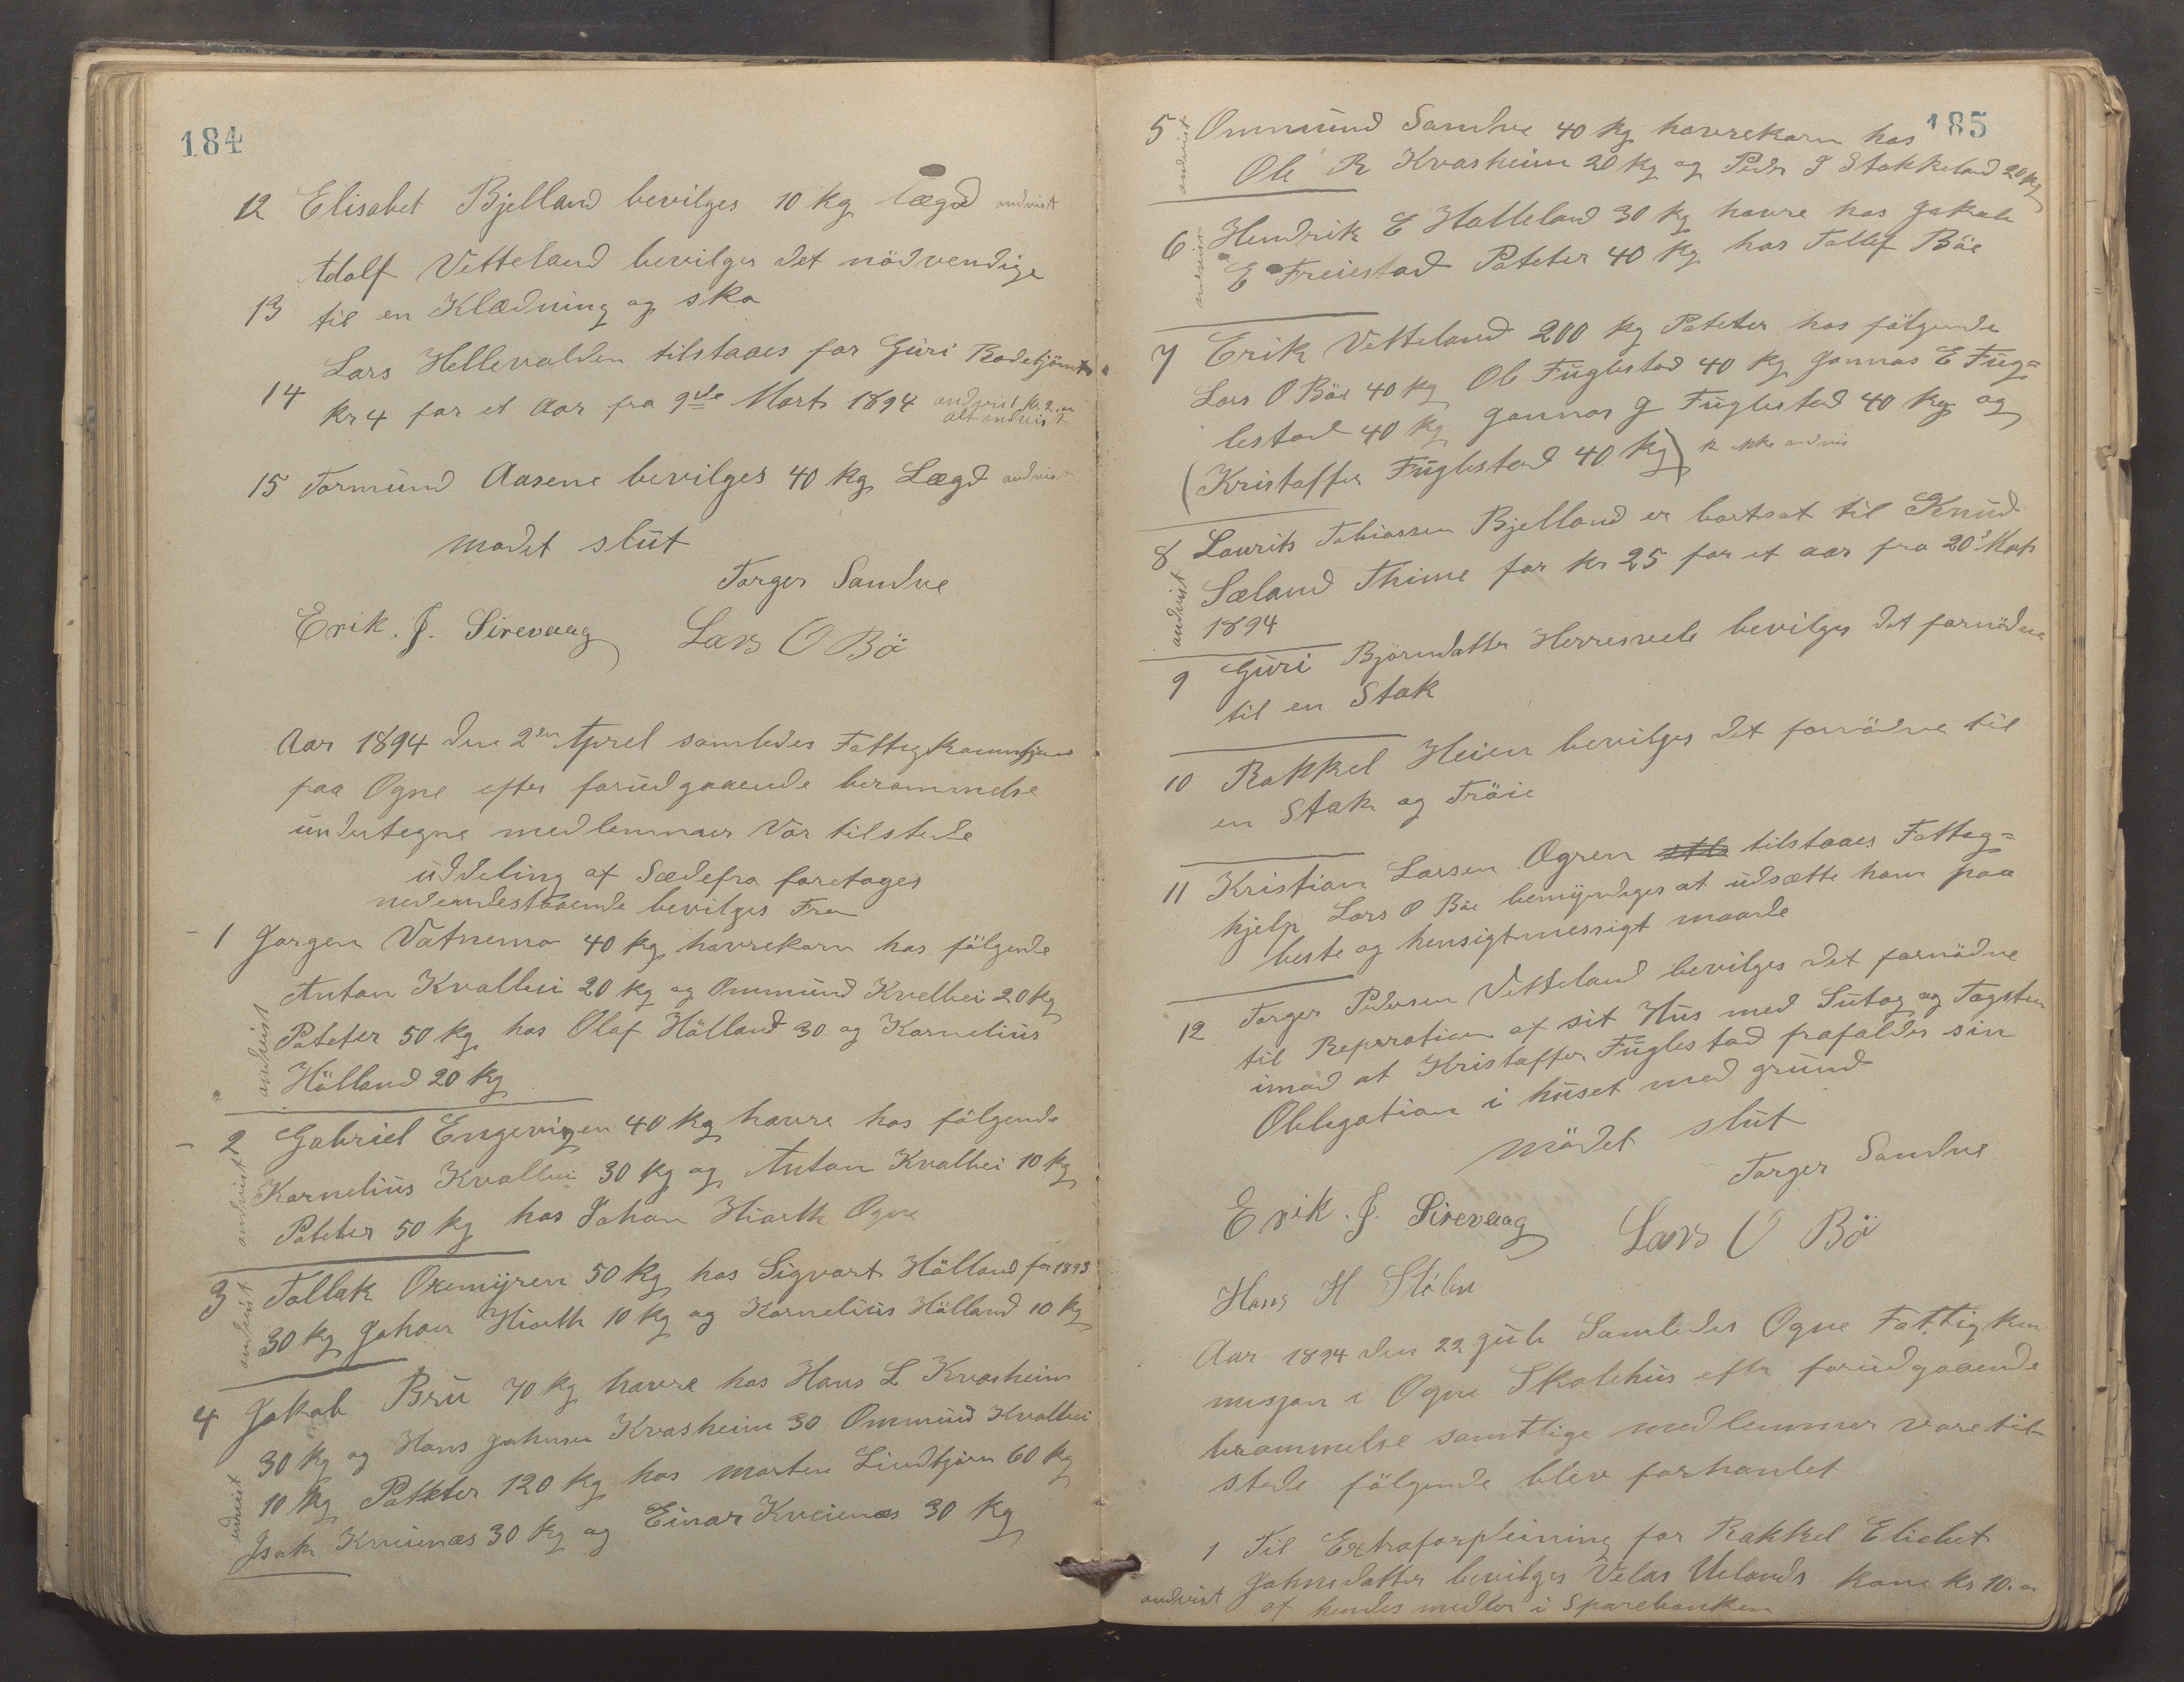 184
12 Elisabet Bjelland bevilges 10 kg Lægd andvist
Adolf Vetteland bevilges det nödvendige
13 til en Klædning og sko
Lars Hellevolden tilstaaes for Guri
14 kr 4 for et Aar fra 9de Marts 1894 andvist kr 2.00
alt andvist
15 Tormund Aasene bevilges 40 kg Lægd andvist
modet slut
Torger Sandve
Erik. J. Sirevaag Lars O Bö
Aar 1894 den 2den April samledes Fattigkommisjonen
paa Ogne efter forudgaaende berammelse
undertegne medlemmer Var tilstede
uddeling af Sædefrø foretoges
nedenndestaaende bevilges Frø
1 Jorgen Vatnemo 40 kg havrekorn hos fölgende
Anton Kvalbei 20 kg og Ommund Kvelbei 20 kg
Poteter 50 kg hos Olaf Hölland 30 og Kornelius
Hölland 20 kg
andvist
2 Gabriel Engevigen 40 kg havre hos fölgende
Kornelius Kvalbei 30 kg og Anton Kvalbei 10 kg
Poteter 50 kg hos Johan Hiorth Ogne
andvist
3 Tollak Oremyren 50 kg hos Sigvart Hölland for 1893
30 kg Johan Hiorth 10 kg og Kornelius Hölland 10 kg
andvist
4 Jakob Bru 70 kg havre hos Hans L Kvasheim
30 kg og Hans Johnsen Kvasheim 30 Ommund Kvalbei
10 kg Poteter 120 kg hos Morten Lindtjörn 60 kg
Isak Kveienæs 30 kg og Einar Kveienæs 30 kg
andvist
185
5 Ommund Sandve 40 kg havrekorn hos
Ole R Kvasheim 20 kg og Peder J Stokkeland 20 kg
andvist
6 Hendrik E Halleland 30 kg havre hos Jakob
E Freiestad Poteter 40 kg hos Tollef Böe
andvist
7 Erik Vetteland 200 kg Poteter hos fölgende
Lars O Böe 40 kg Ole Fuglestad 40 kg Jonnas E Fug=
lestad 40 kg Jonnas J Fuglestad 40 kg og
(Kristoffer Fuglestad 40 kg) ikke andvis
8 Lourits Tobiassen Bjelland er bortsat til Knud
Sæland Thime for kr 25 for et aar fra 20de Mats
1894
andvist
9 Guri Björnsdatter Herresvele bevilges det fornödne
til en Stak
10 Rakkel Heien bevilges det fornödne til
en Stak og Tröie
11 Kristian Larsen Ogren tilstaaes Fattog=
hjelp Lars O Böe bemyndiges at udsætte ham paa
beste og hensigtmessigt maade
12 Torger Pedersen Vetteland bevilges det fornödne
til Reperation af sit Hus med Sutag og Tagsten
imod at Kristoffer Fuglestad frafalder sin
Obligation i huset med grund
mödet slut
Torger Sandve
Erik. J. Sirevaag Lars O Bö
Hans H
Aar 1894 den 22 Juli Samledes Ogne Fattigkom
misjon i Ogne Skolehus efter forudgaaende
brammelse samtlige medlemmer vare til-
stede fölgende blev forhanlet
1 Til Extraforpleining for Rakkel Eliebet
Johnsdatter bevilges Velas Uelands kone kr 10.00
andvist af hendes medler i Sparebanken